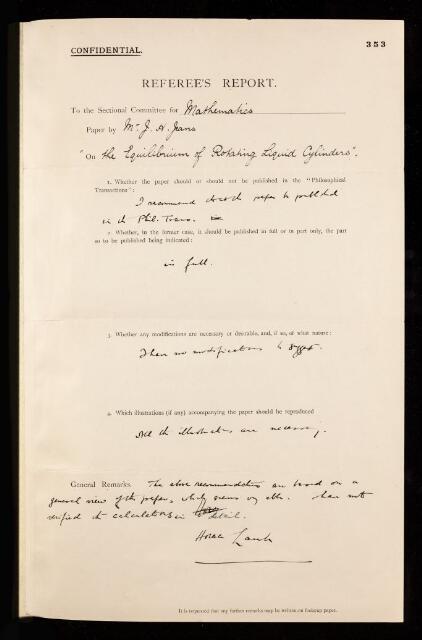 353
CONFIDENTIAL.
REFEREE'S REPORT.
To the Sectional Committee for Mathematics
Paper by Mr J. H. Jeans
"On the Equilibrium of Rotating Liquid Cylinders".
1. Whether the paper should or should not be published in the "Philosophical
Transactions":
I recommend paper be published
in the Phil. Trans.
2. Whether, in the former case, it should be published in full or in part only, the part
so to be published being indicated:
in full.
3. Whether any modifications are necessary or desirable, and, if so, of what nature:
I have no modifications to suggest.
4. Which illustrations (if any) accompanying the paper should be reproduced
All the illustrations are necessary.
General Remarks. The above recommendations are based on a
general view of the paper, which seems I have not
verified the calculations in detail.
Horace Lamb
It is requested that any further remarks may be written on foolscap paper.